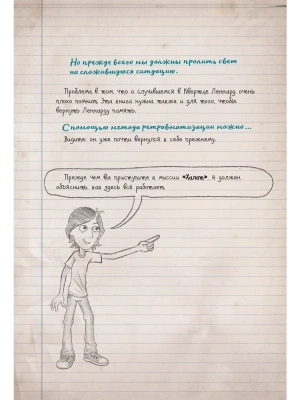 Но прежде всего мы должны пролить свет
на сложившуюся ситуацию.
Проблема в том, что о случившемся в Квартце Леннард очень
плохо помнит. Эта книга нужна также и для того, чтобы
вернуть Леннарду память.
С помощью метода ретровматизации можно...
Видите: он уже почти вернулся к себе прежнему.
Прежде чем вы приступите к миссии «Халит», я должен
объяснить, как здесь всё работает.